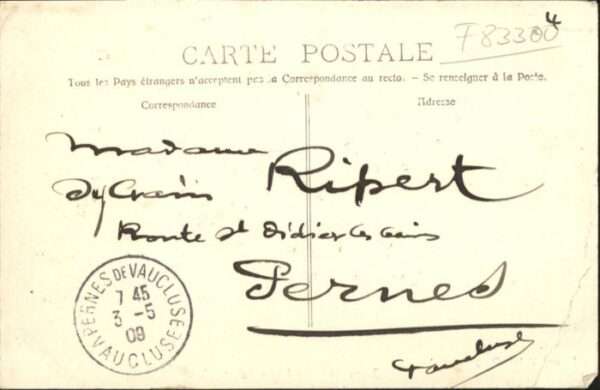 F83300 4
CARTE POSTALE
Tous les Pays étrangers n'acceptent pas la Correspondance au recto. - Se renseigner à la Poste.
Correspondance
Adresse
Madame
Sylvain Ripert
Route St Didier les Bains
Pernes
Vaucluse
PERNES DE VAUCLUSE
7 45
3 -5
09
VAUCLUSE